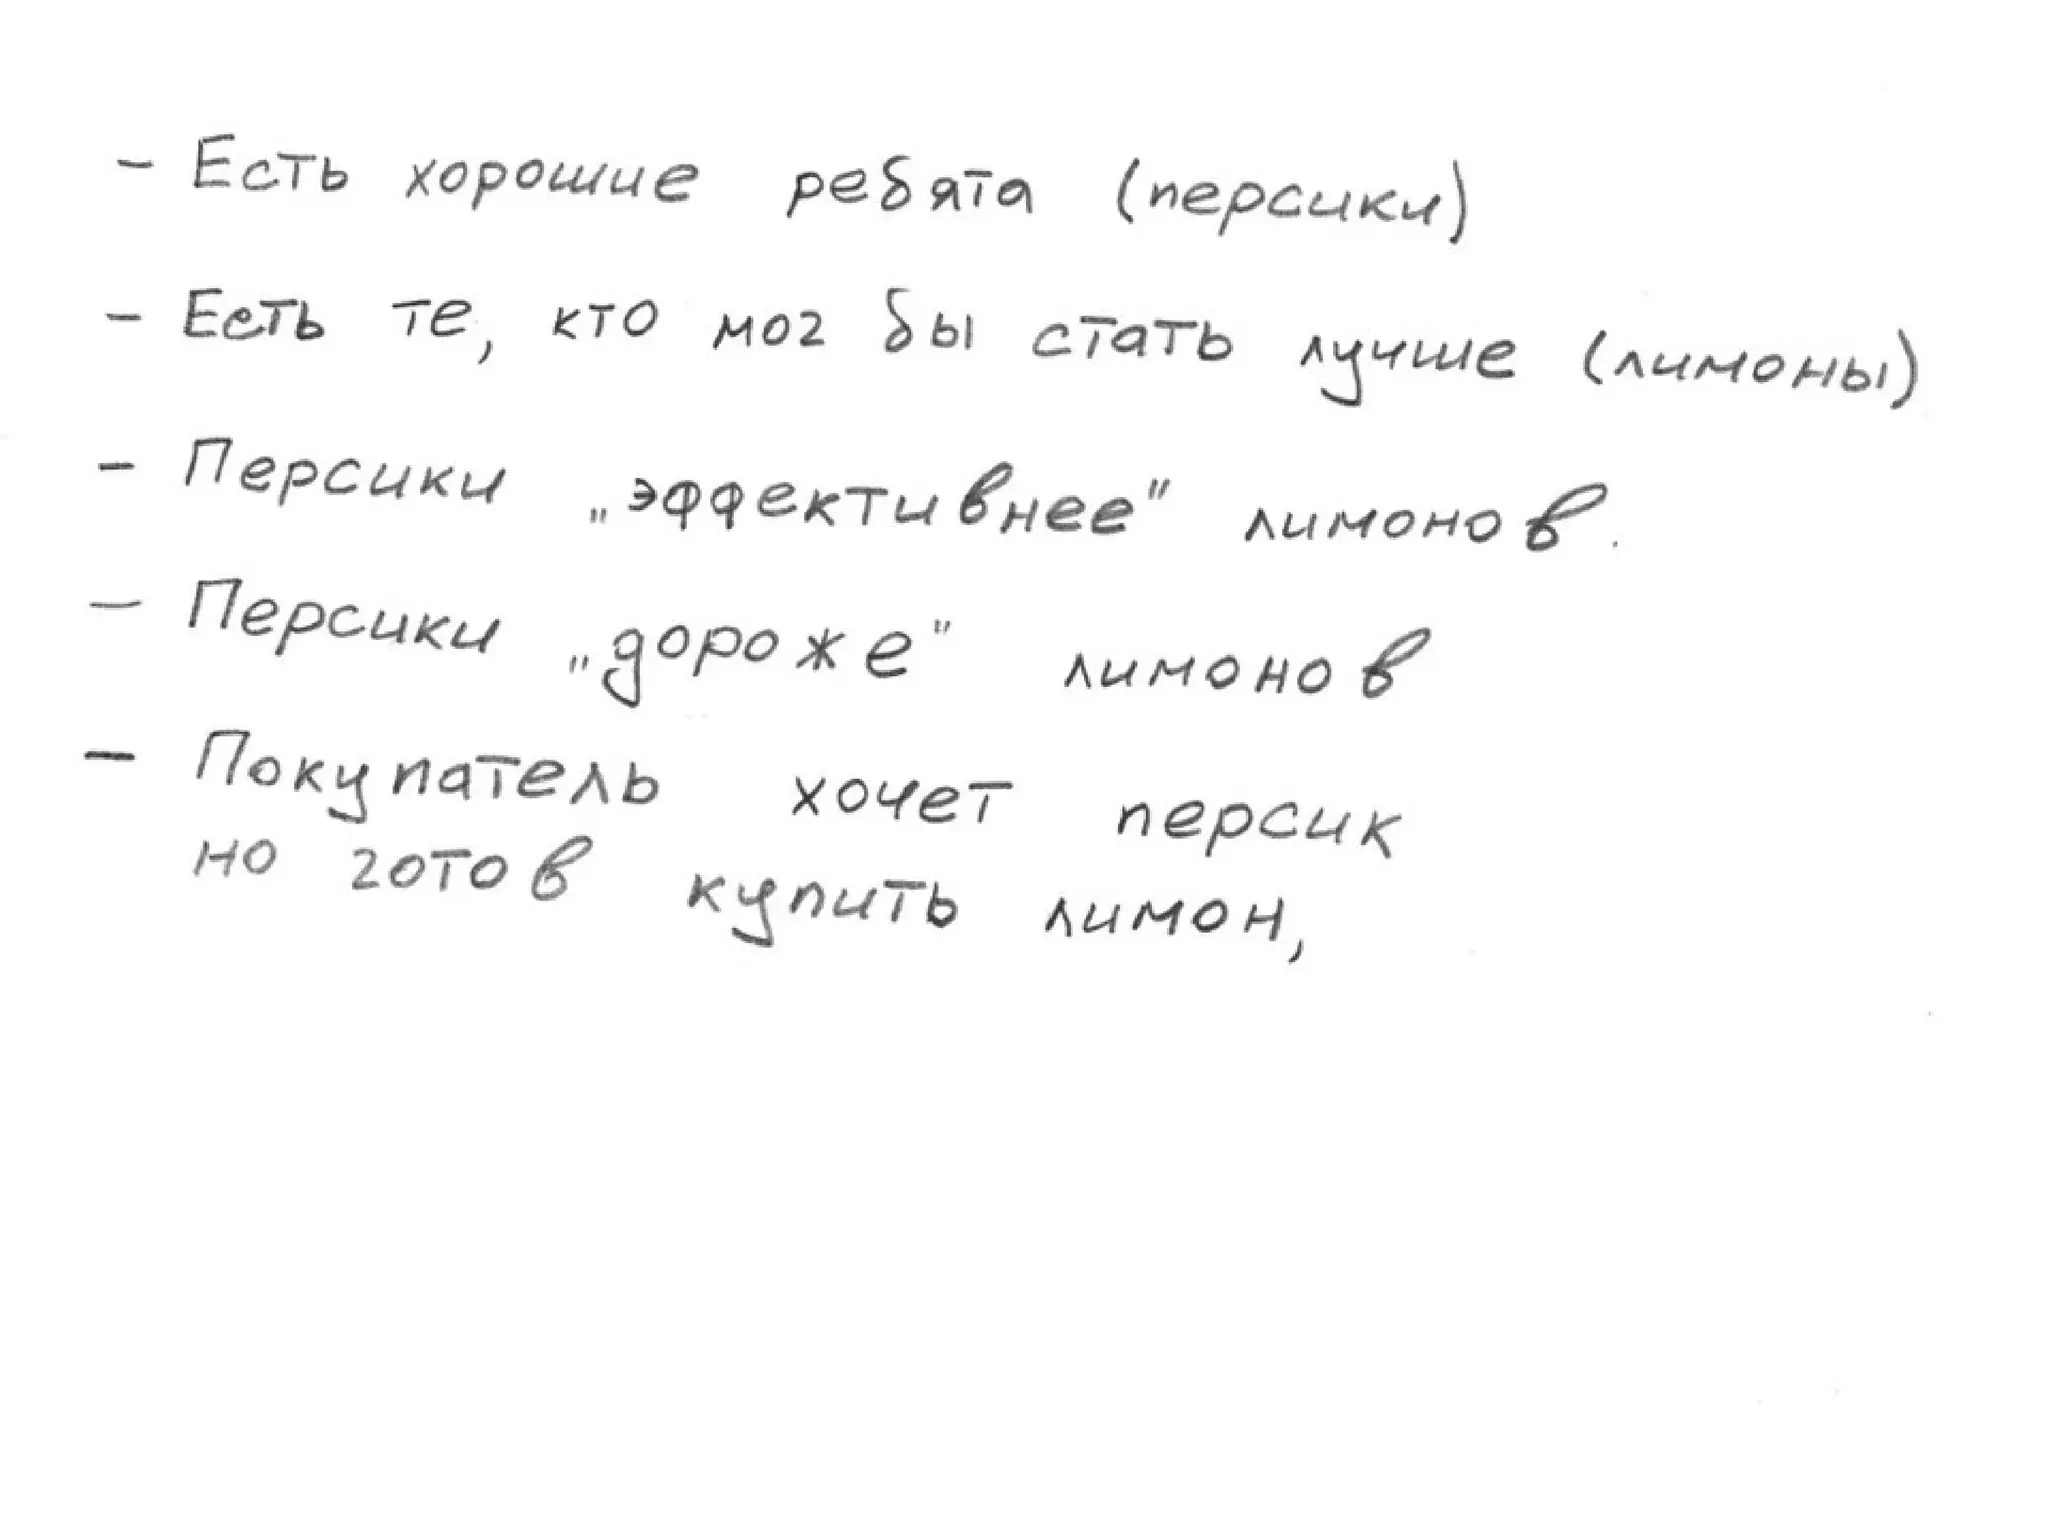 - Есть хорошие ребята (персики)
- Есть те, кто мог бы стать лучше (лимоны)
- Персики „эффективнее" лимонов.
- Персики „дороже" лимонов
- Покупатель хочет персик
но готов купить лимон,